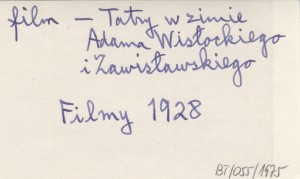 film – Tatry w zimie
Adama Wisłockiego
i Zawistawskiego
Filmy 1928
BT/055/1975